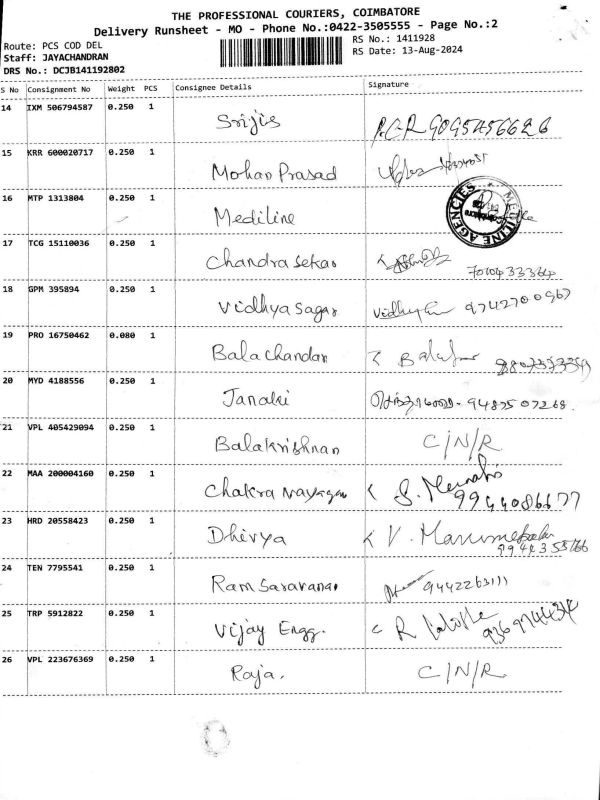 THE PROFESSIONAL COURIERS, COIMBATORE
Delivery Runsheet - MO - Phone No.:0422-3505555 - Page No.:2
Route: PCS COD DEL RS No.: 1411928
Staff: JAYACHANDRAN RS Date: 13-Aug-2024
DRS No.: DCJB141192802
S No Consignment No Weight PCS Consignee Details Signature
14 IXM 506794587 0.250 1 Srijis 9095456626
15 KRR 600020717 0.250 1 Mohan Prasad
16 MTP 1313804 0.250 1 Mediline MEDILINE AGENCIES Coimbatore
17 TCG 15110036 0.250 1 Chandra Sekar
18 GPM 395894 0.250 1 Vidhya Sagar 9742700967
19 PRO 16750462 0.080 1 Bala Chandar
20 MYD 4188556 0.250 1 Janaki 9487507268
21 VPL 405429094 0.250 1 Balakrishnan C/N/R
22 MAA 200004160 0.250 1 Chakra nayagan 9944086677
23 HRD 20558423 0.250 1 Dhivya V.
24 TEN 7795541 0.250 1 Ram Saravanan 9442263111
25 TRP 5912822 0.250 1 Vijay Engg. R
26 VPL 223676369 0.250 1 Raja. C/N/R